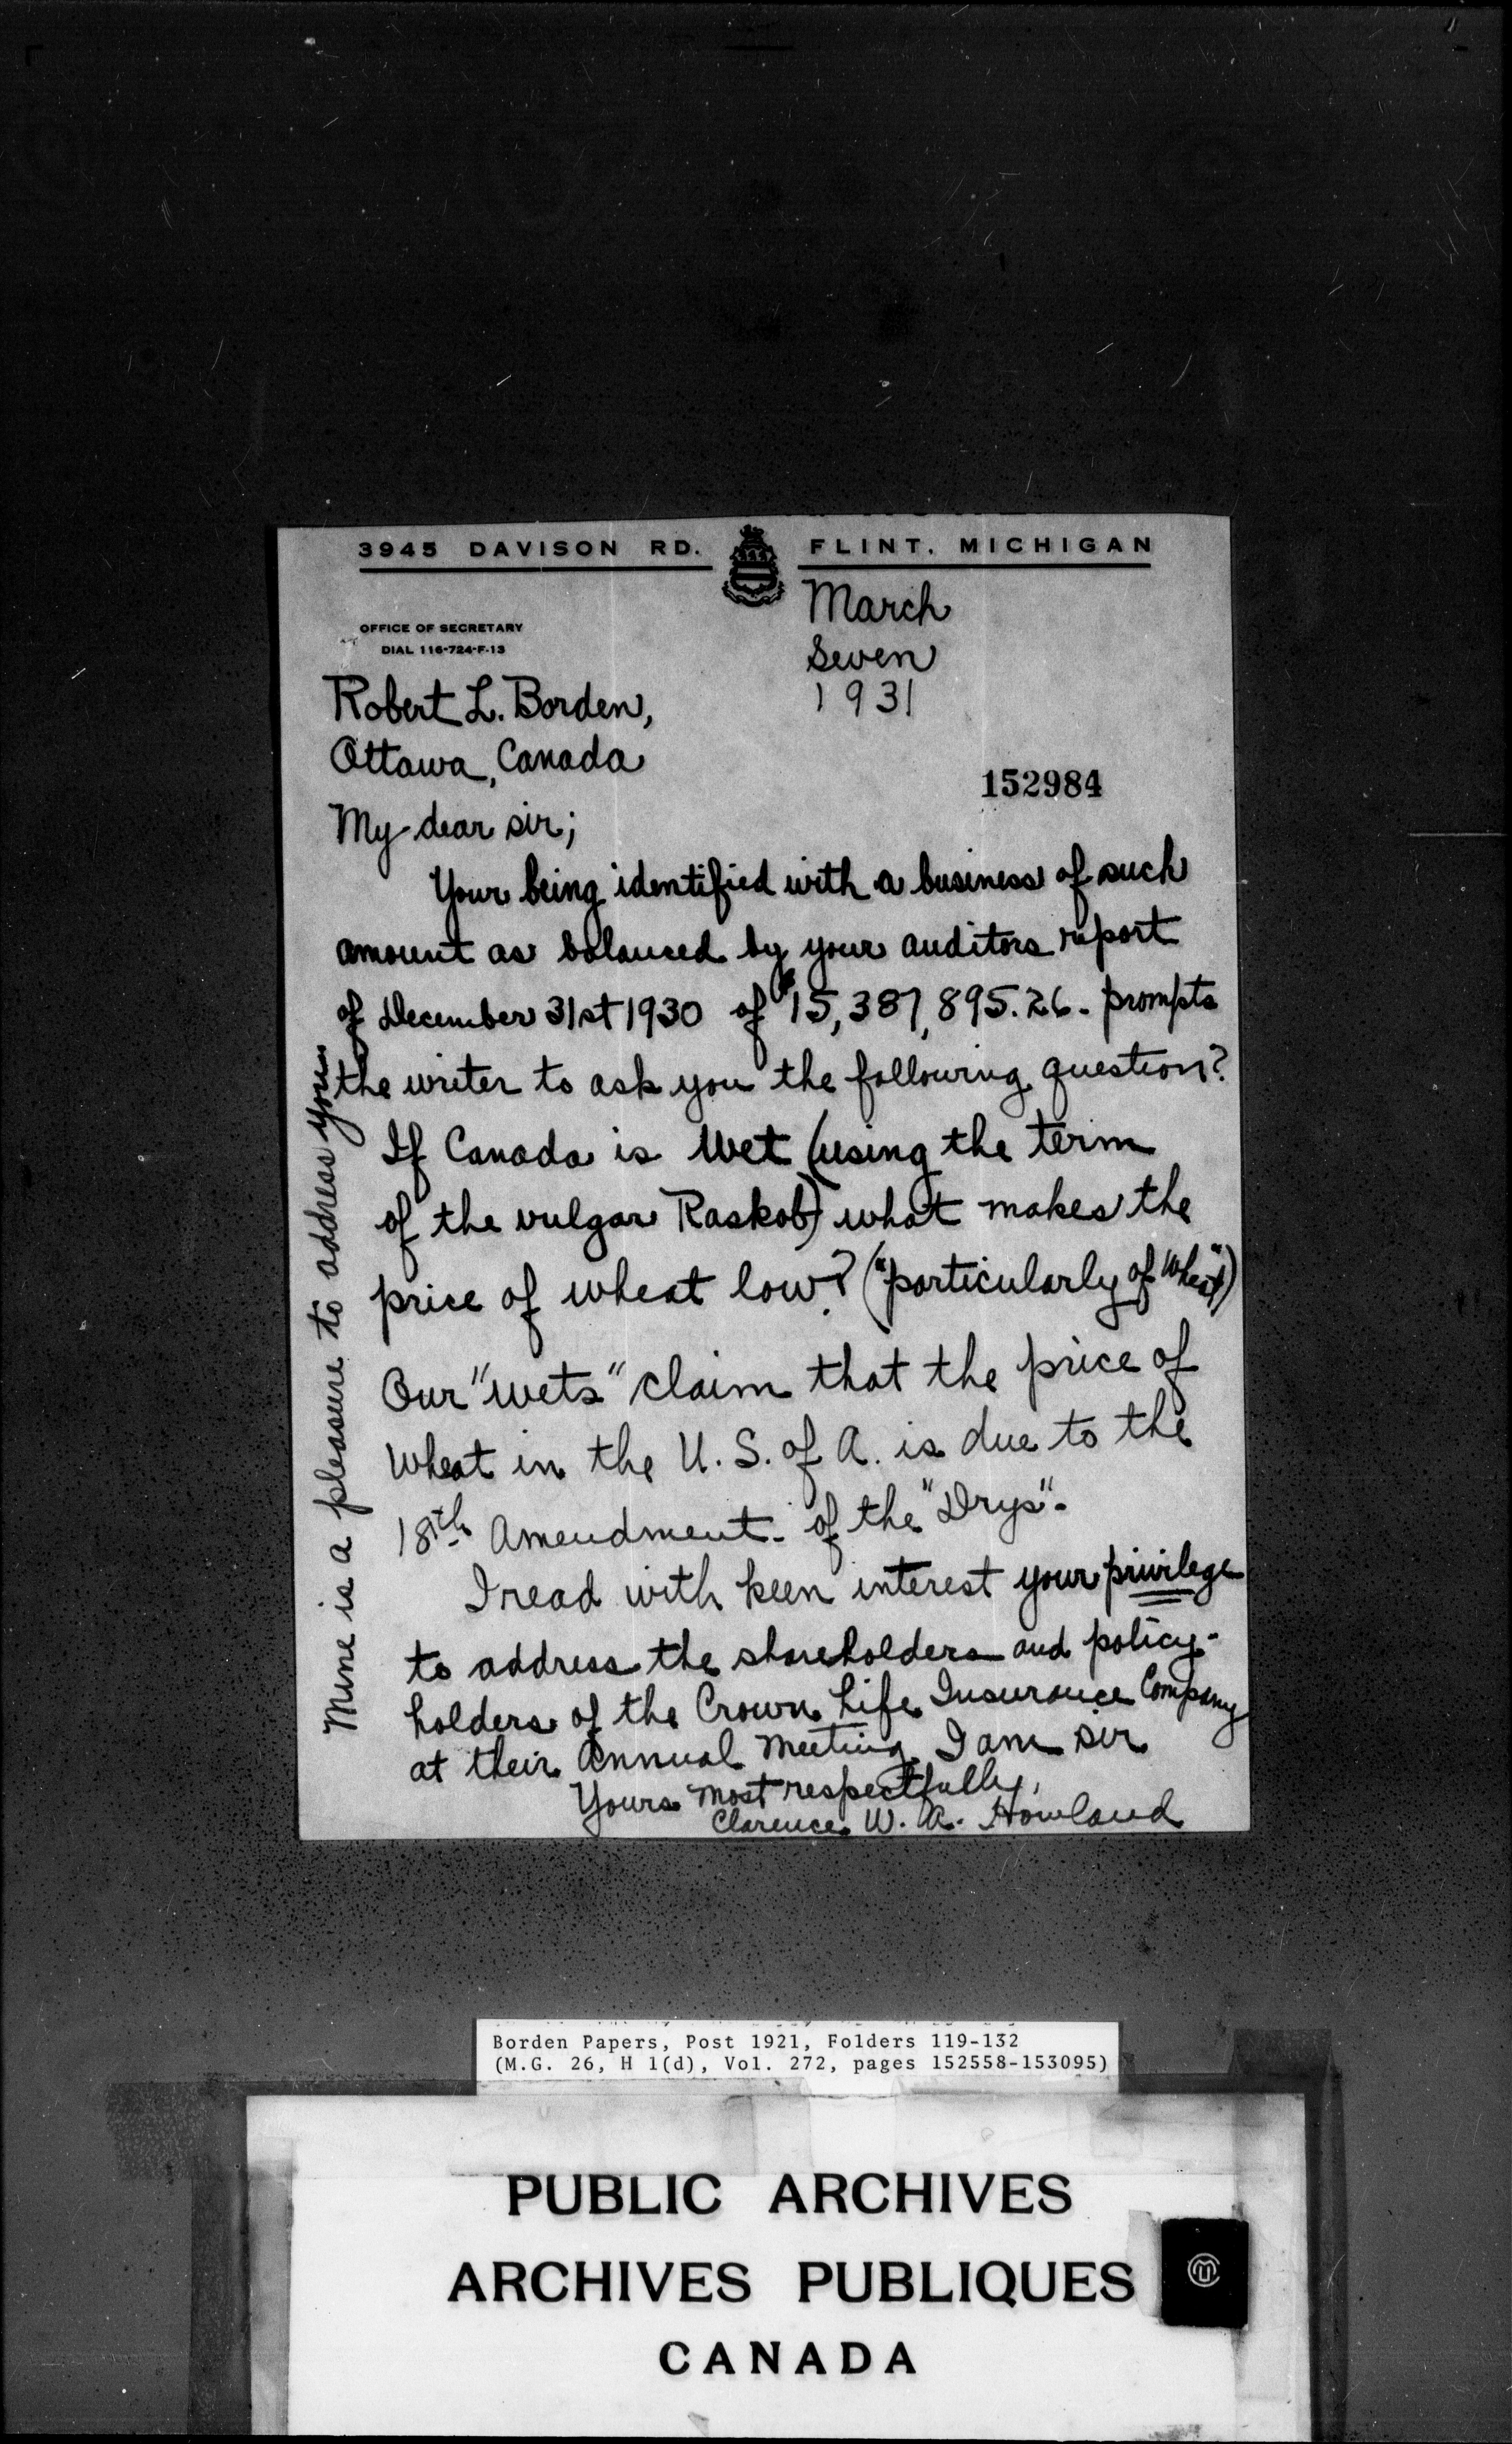 3945 DAVISON RD. FLINT, MICHIGAN
OFFICE OF SECRETARY
DIAL 116-724-F-13
March
Seven
1931
Robert L. Borden,
Ottawa, Canada
152984
My dear sir;
Your being identified with a business of such
amount as balanced by your auditors report
of December 31st 1930 of $15,387,895.26. prompts
the writer to ask you the following question?
If Canada is wet (using the term
of the vulgar Raskob) what makes the
price of wheat low? ("particularly of Wheat")
Our "wets" claim that the price of
Wheat in the U.S. of A. is due to the
18th Amendment. of the "Drys".
I read with keen interest your privilege
to address the shareholders and policy-
holders of the Crown Life Insurance Company
at their Annual Meeting. I am sir
Yours most respectfully,
Clarence W. A. Howland
Mine is a pleasure to address you
Borden Papers, Post 1921, Folders 119-132
(M.G. 26, H 1(d), Vol. 272, pages 152558-153095)
PUBLIC ARCHIVES
ARCHIVES PUBLIQUES
CANADA